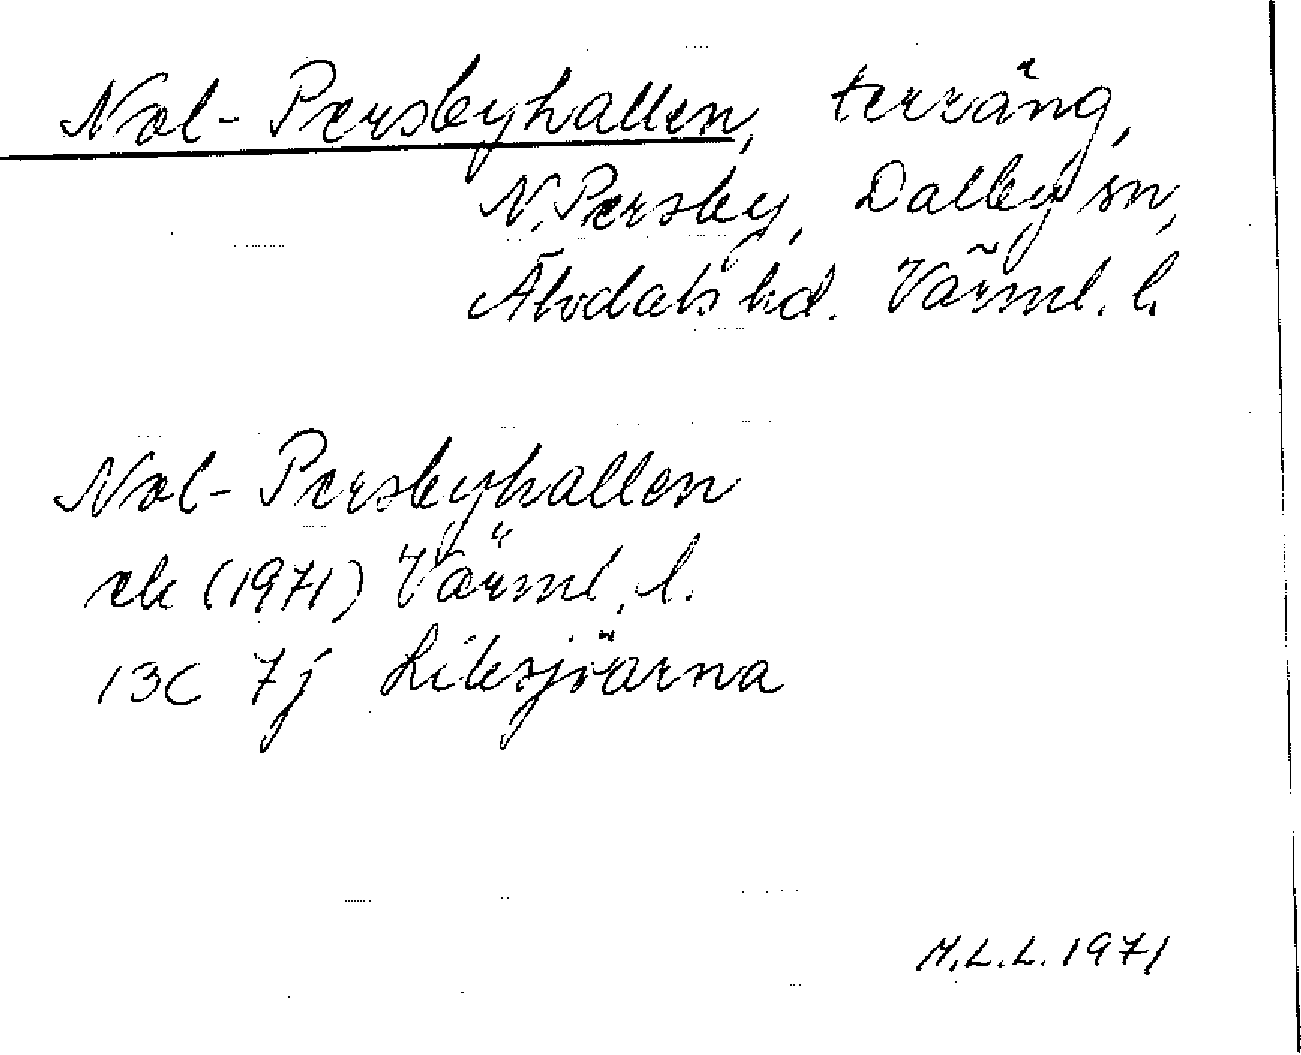 Nol-Persbyhallen, terräng,
N. Persby, Dalby sn,
Älvdals hd. Värml. l.
Nol-Persbyhallen
ek (1971) Värml. l.
13C 7j Liksjöarna
M.L.L. 1971